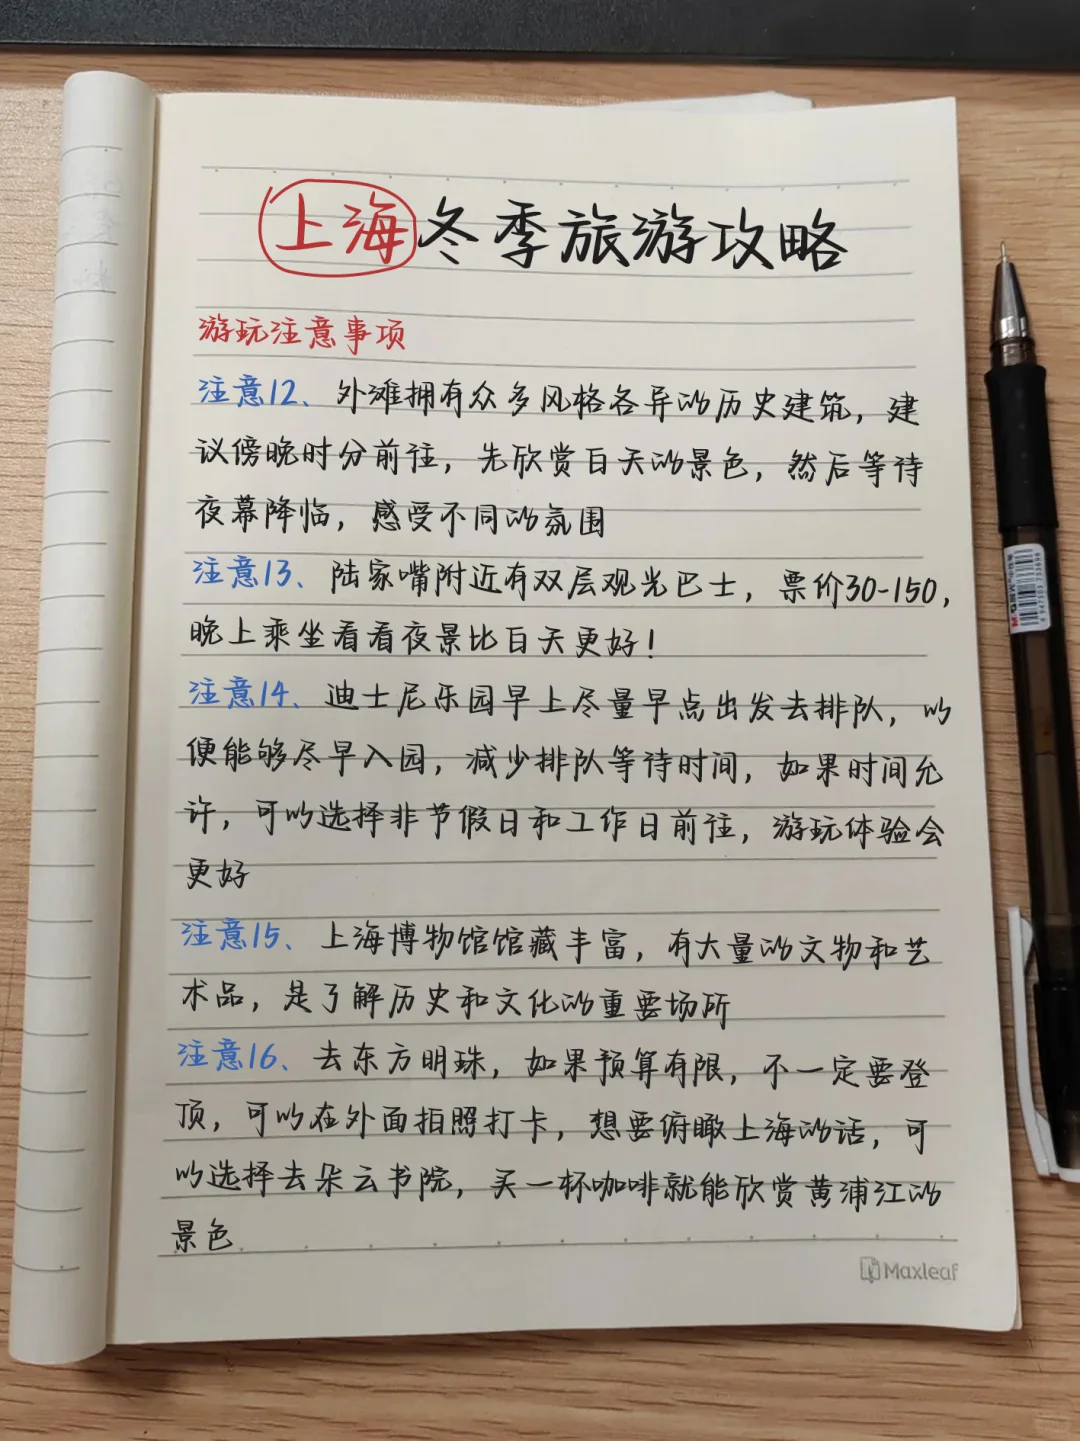 上海冬季旅游攻略
游玩注意事项
注意12、外滩拥有众多风格各异的历史建筑，建
议傍晚时分前往，先欣赏白天的景色，然后等待
夜幕降临，感受不同的氛围
注意13、陆家嘴附近有双层观光巴士，票价30-150，
晚上乘坐看看夜景比白天更好！
注意14、迪士尼乐园早上尽量早点出发去排队，以
便能够尽早入园，减少排队等待时间，如果时间允
许，可以选择非节假日和工作日前往，游玩体验会
更好
注意15、上海博物馆馆藏丰富，有大量的文物和艺
术品，是了解历史和文化的重要场所
注意16、去东方明珠，如果预算有限，不一定要登
顶，可以在外面拍照打卡，想要俯瞰上海的话，可
以选择去朵云书院，买一杯咖啡就能欣赏黄浦江的
景色
Maxleaf